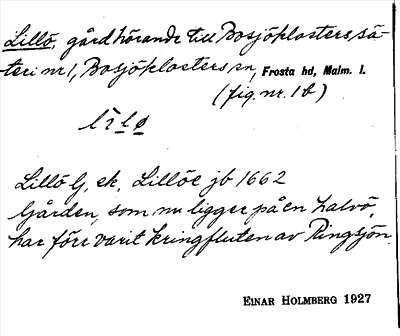 Lillö, gård hörande till Bosjöklosters sä-
teri nr 1, Bosjöklosters sn, Frosta hd, Malm. l.
(fig. nr. 1 b)
Lillö G, ek. Lillöe jb 1662
Gården, som nu ligger på en halvö,
har förr varit kringfluten av Ringsjön.
EINAR HOLMBERG 1927